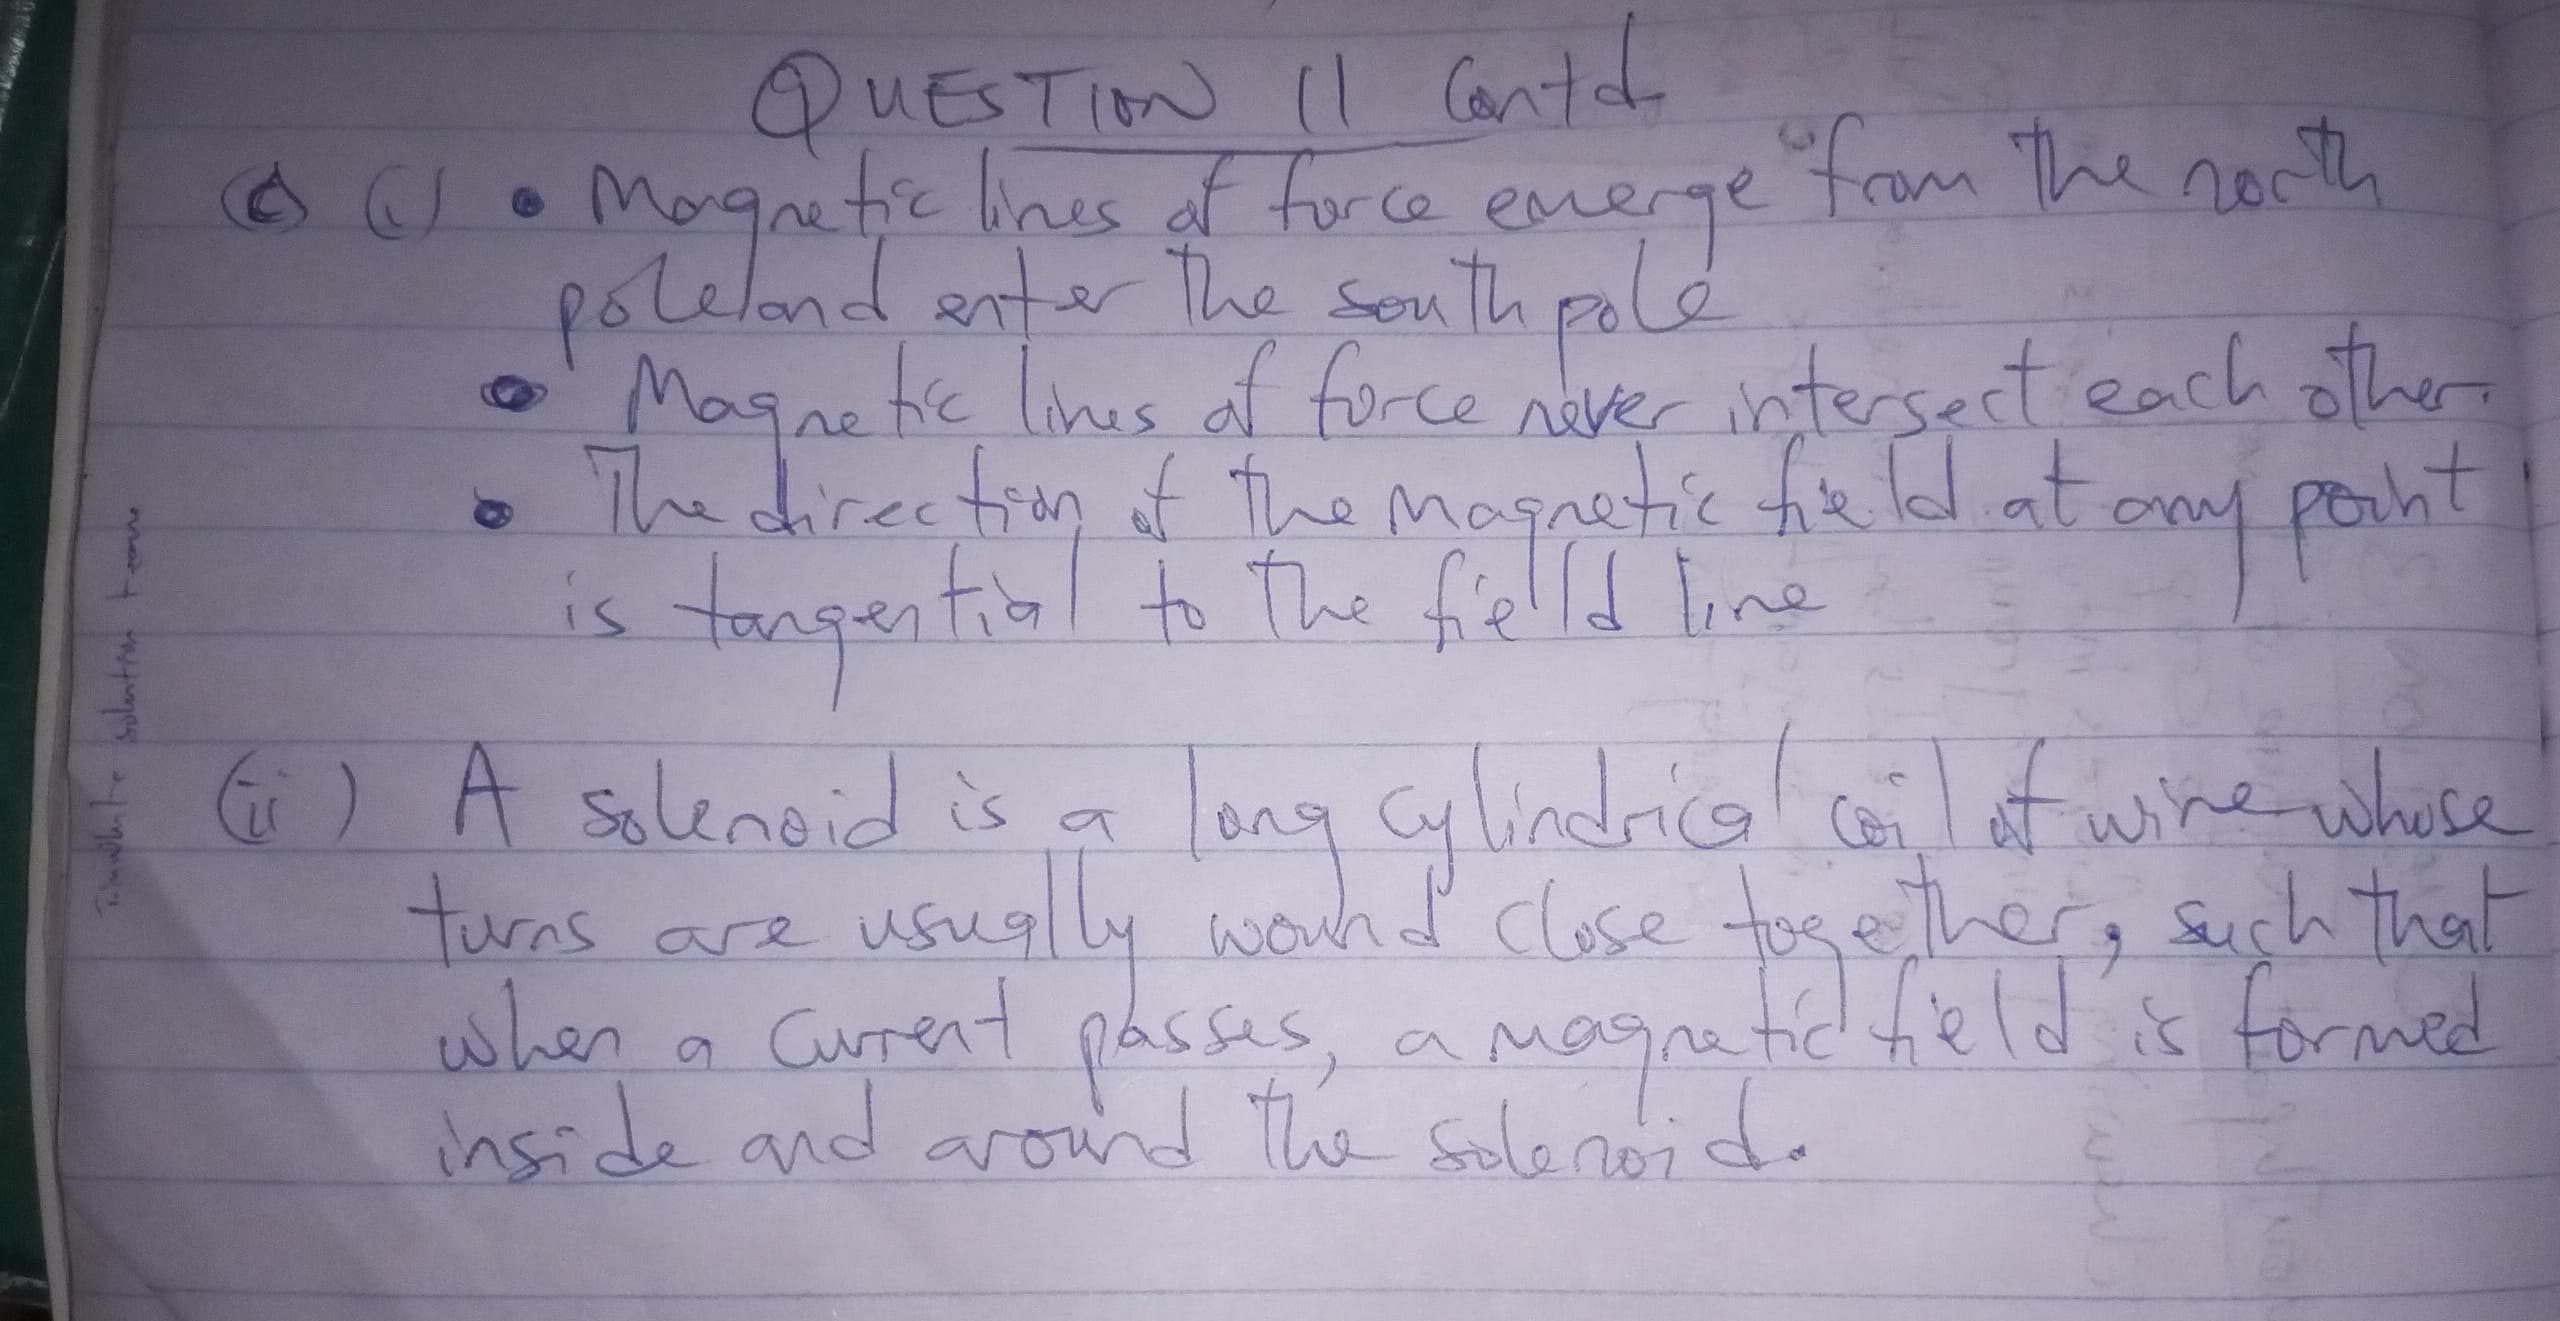 QUESTION 11 Contd
(c) (i) • Magnetic lines of force emerge from the north
pole and enter the south pole
• Magnetic lines of force never intersect each other.
• The direction of the magnetic field at any point
is tangential to the field line
(ii) A solenoid is a long cylindrical coil of wire whose
turns are usually wound close together, such that
when a current passes, a magnetic field is formed
inside and around the solenoid.
solution team